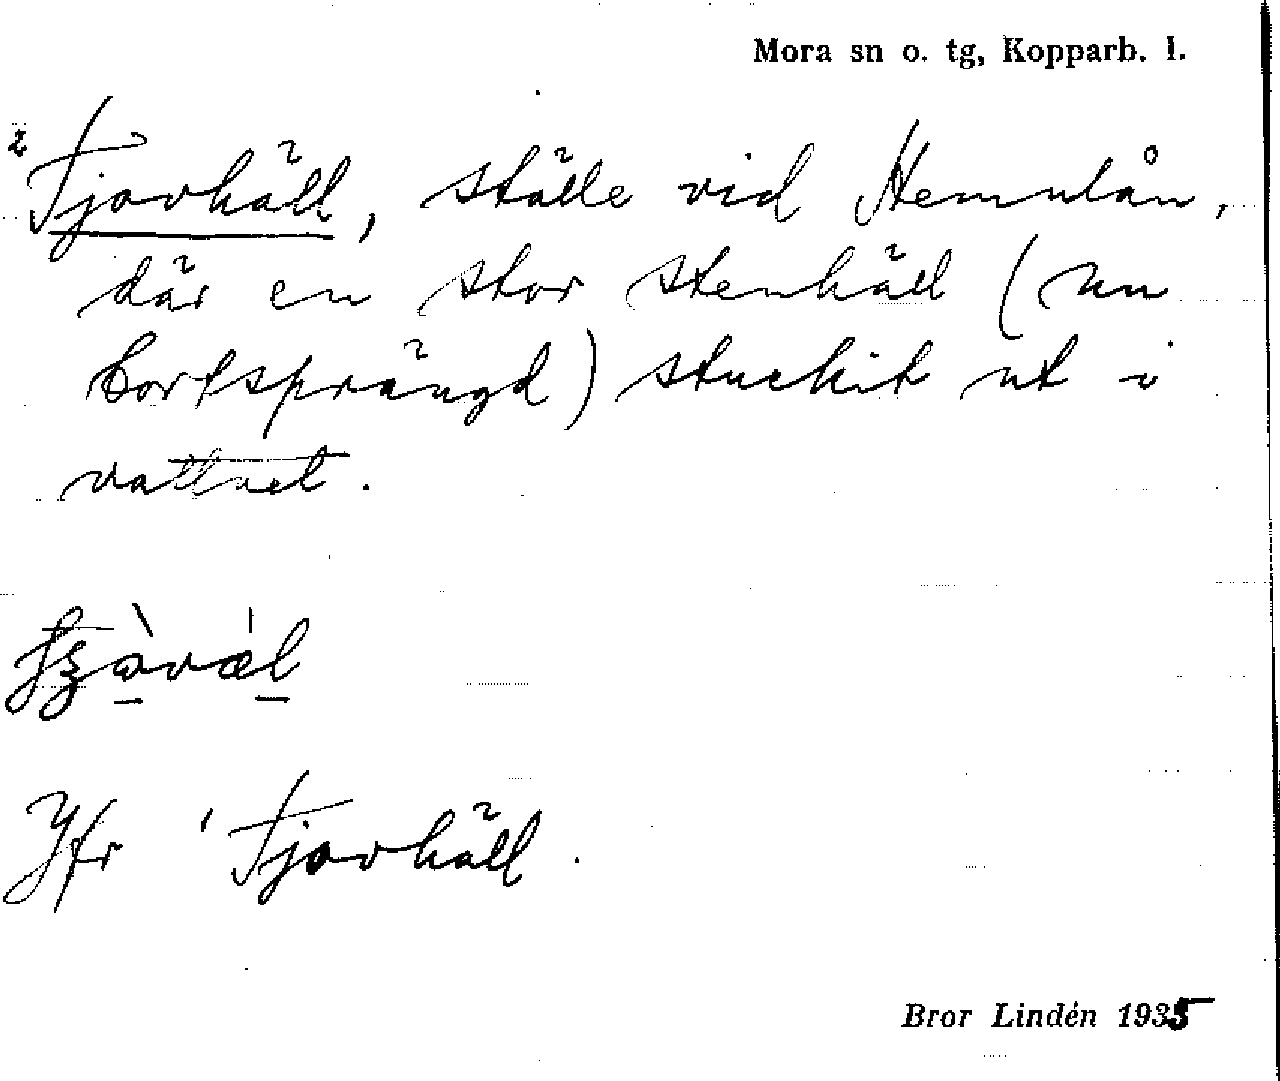 Mora sn o. tg, Kopparb. l.
² Tjovhäll, ställe vid Hemulån,
där en stor stenhäll (nu
bortsprängd) stuckit ut i
vattnet.
Jfr ¹ Tjovhäll.
Bror Lindén 1935